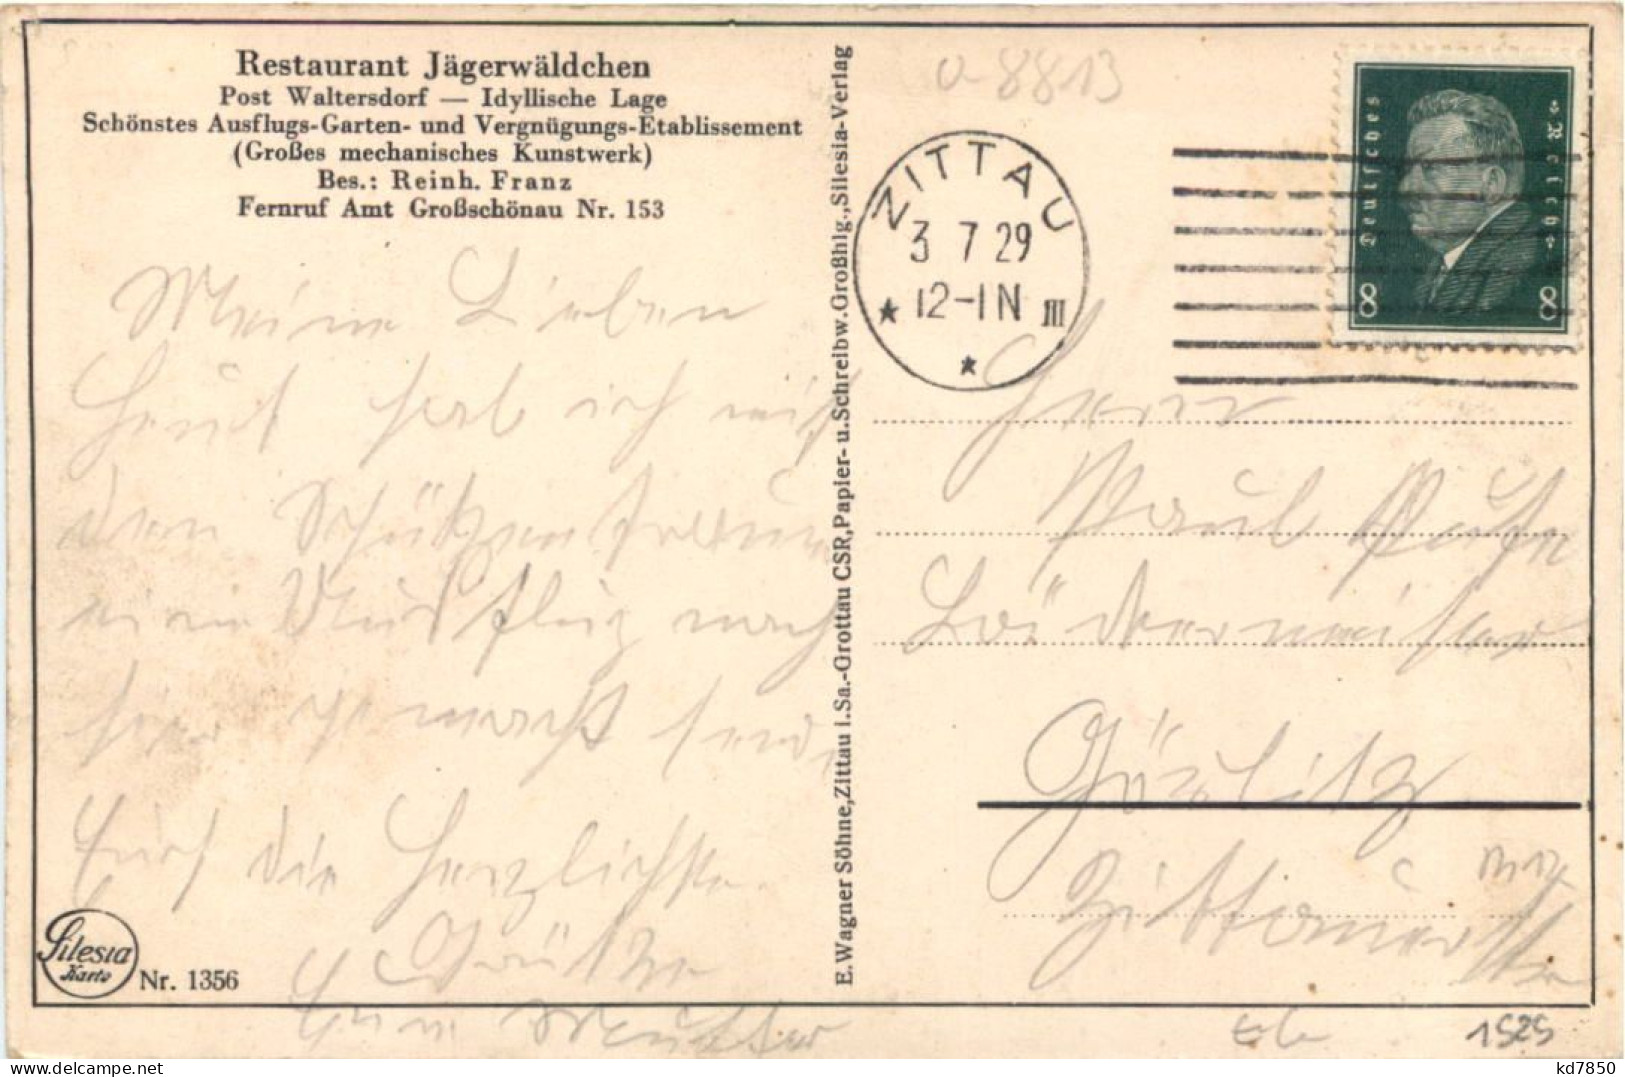 Restaurant Jägerwäldchen
Post Waltersdorf — Idyllische Lage
Schönstes Ausflugs-Garten- und Vergnügungs-Etablissement
(Großes mechanisches Kunstwerk)
Bes.: Reinh. Franz
Fernruf Amt Großschönau Nr. 153
Meine Lieben
Heut hab ich mit
den Schützenfrauen
ein Ausflug nach
hier gemacht send
Euch die Herzlichste
Grüße
Eure Mutter
Silesia
Karte
Nr. 1356
E. Wagner Söhne, Zittau i. Sa.-Grottau CSR, Papier- u. Schreibw. Großhlg., Silesia-Verlag
0-8813
ZITTAU
3 7 29
12-1 N III
Deutsches
Reich
8 8
Herrn
Paul
Görlitz
Zittauerstr
1525
kd7850